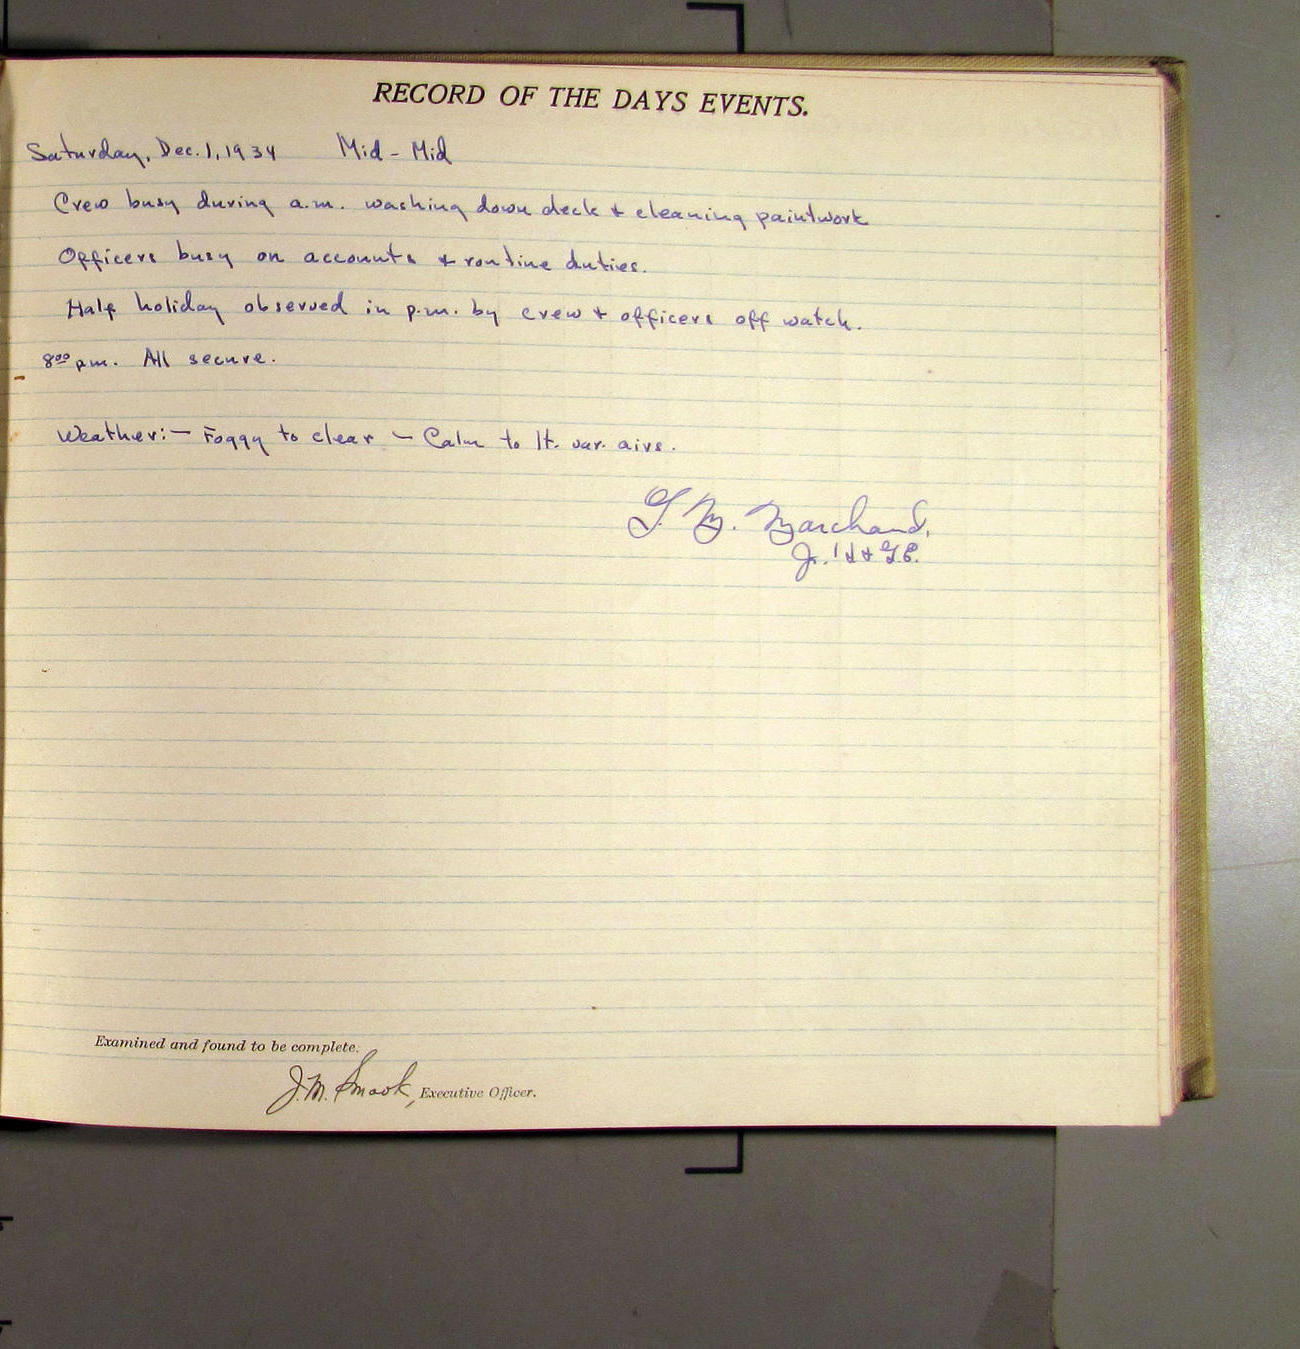 RECORD OF THE DAYS EVENTS.
Saturday, Dec. 1, 1934 Mid - Mid
Crew busy during a.m. washing down deck & cleaning paintwork
Officers busy on accounts & routine duties.
Half holiday observed in p.m. by crew & officers off watch.
8⁰⁰ pm. All secure.
Weather:- Foggy to clear - Calm to lt. var. airs.
Marchand.
Jr. H & G.E.
Examined and found to be complete.
J.M. Smook, Executive Officer.